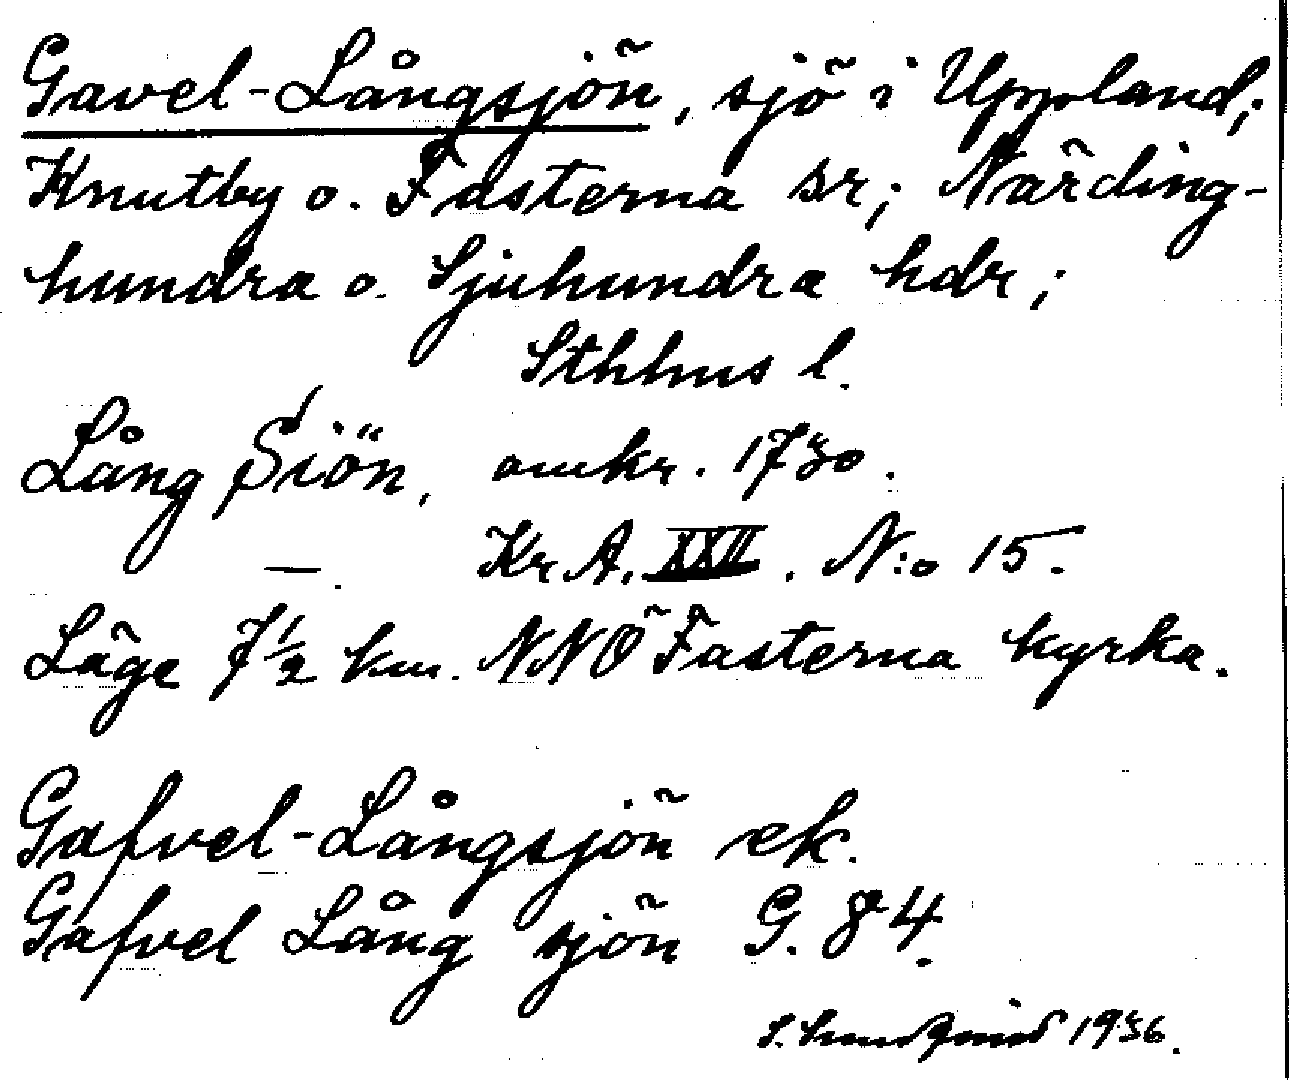 Gavel-Långsjön, sjö i Uppland;
Knutby o. Fasterna sr; Närding-
hundra o. Sjuhundra hdr;
Sthhus l.
Lång Siön, omkr. 1730.
—. Kr A. XXII. N:o 15.
Läge 7½ km. NNÖ Fasterna kyrka.
Gafvel-Långsjön ek.
Gafvel Lång sjön G. 84.
S. 1936.